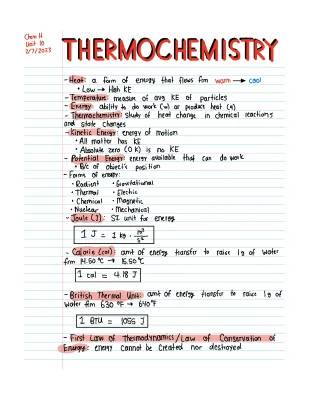 Chem H
Unit 10
2/7/2023
THERMOCHEMISTRY
- Heat: a form of energy that flows frm warm → cool
• Low → High KE
- Temperature: measure of avg KE of particles
- Energy: ability to do work (w) or produce heat (q)
- Thermochemistry: study of heat change in chemical reactions
and state changes
- Kinetic Energy: energy of motion
• All matter has KE
• Absolute zero (0 K) is no KE
- Potential Energy: energy available that can do work
• B/c of object's position
- Forms of energy:
• Radiant • Gravitational
• Thermal • Electric
• Chemical • Magnetic
• Nuclear • Mechanical
- Joule (J): SI unit for energy
1 J = 1 kg · m²/s²
- Calorie (cal): amt of energy transfer to raise 1g of water
frm 14.50 °C → 15.50 °C
1 cal = 4.18 J
- British Thermal Unit: amt of energy transfer to raise 1g of
water frm 63.0 °F → 64.0 °F
1 BTU = 1055 J
- First Law of Thermodynamics/Law of Conservation of
Energy: energy cannot be created nor destroyed